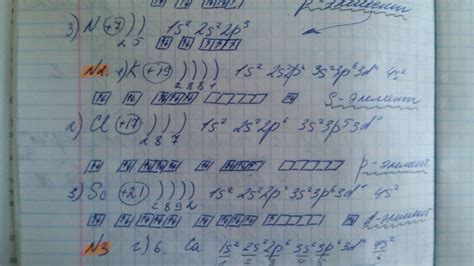 р-элемент
3) N (+7) ) ) 1s² 2s²2p³
2 5
N2. 1) K (+19) ) ) ) ) 1s² 2s²2p⁶ 3s²3p⁶3d⁰ 4s¹
2 8 8 1
S-элемент
2) Cl (+17) ) ) ) 1s² 2s²2p⁶ 3s²3p⁵3d⁰
2 8 7
р-элемент
3) Sc (+21) ) ) ) ) 1s² 2s²2p⁶ 3s²3p⁶3d¹ 4s²
2 8 9 2
d-элемент
N3 2) 6. Ca 1s² 2s²2p⁶ 3s²3p⁶3d⁰ 4s²